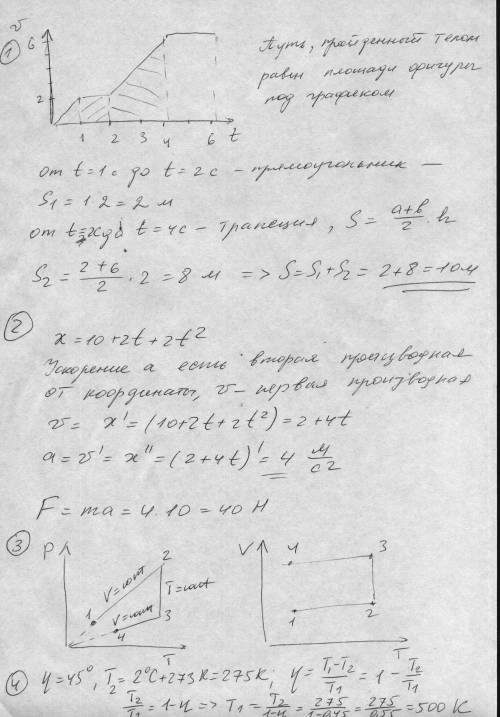 v
① 6
2
1 2 3 4 6 t
Путь, пройденный телом
равен площади фигуры
под графиком
от t=1с до t=2с – прямоугольник –
S₁ = 1·2 = 2 м
от t=2с до t=4с – трапеция, S = (a+b)/2 · h
S₂ = (2+6)/2 · 2 = 8 м => S = S₁+S₂ = 2+8 = 10м
②
x = 10+2t+2t²
Ускорение a есть вторая производная
от координаты, v – первая производная
v = x' = (10+2t+2t²) = 2+4t
a = v' = x'' = (2+4t)' = 4 м/с2
F = ma = 4·10 = 40 Н
③ P V
2 4 3
V=const T=const
1 V=const 3
4 1 2
T T
④ η=45°, T₂=2°C+273K=275K; η=(T₁-T₂)/T₁ = 1 - T₂/T₁
T₂/T₁ = 1-η => T₁ = T₂/(1-η) = 275/(1-0,45) = 275/0,55 = 500 K